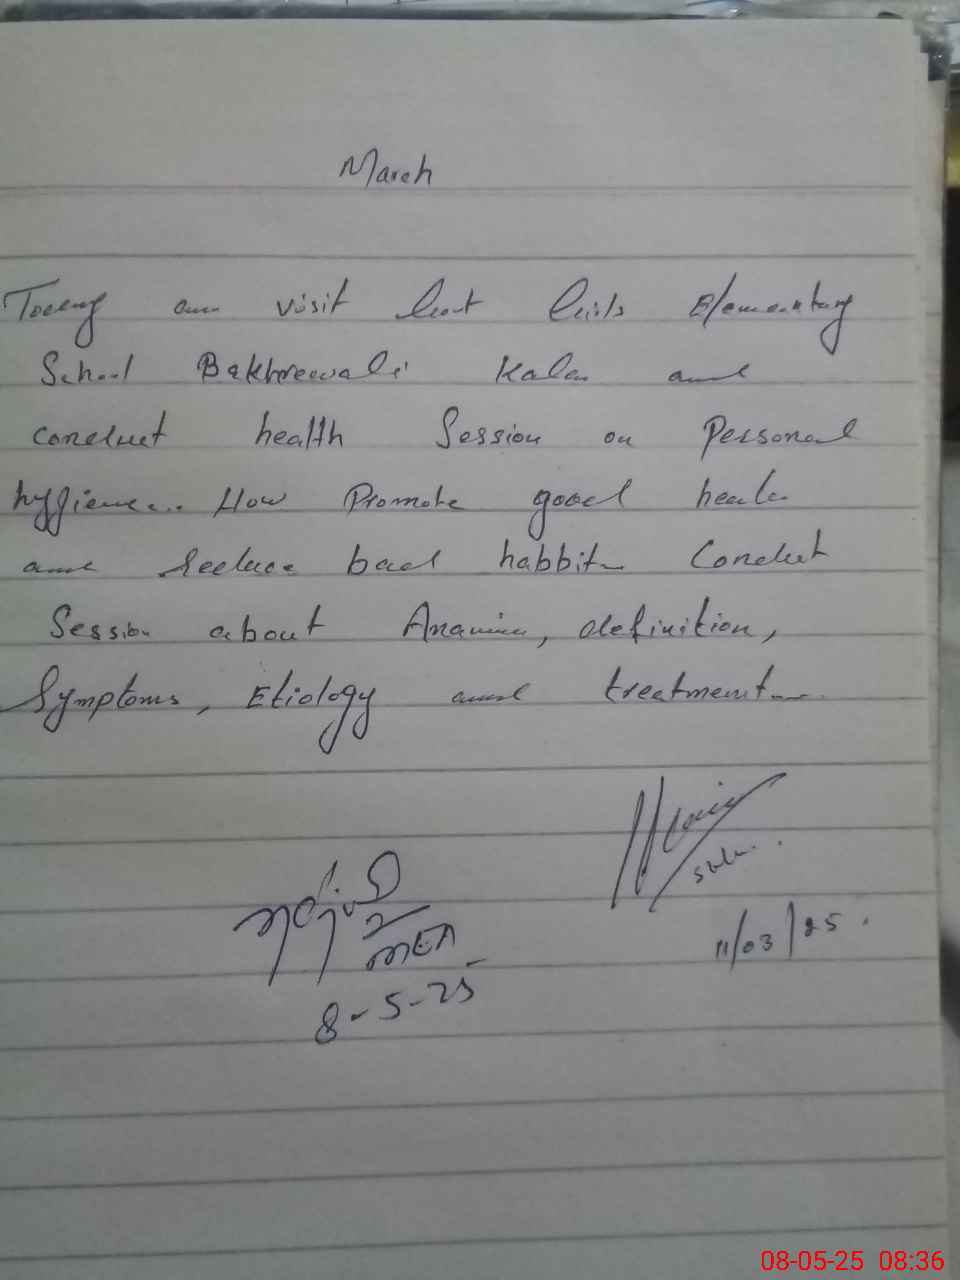 March
Today am visit Govt Girls Elementary
School Bakhreewali Kalan and
conduct health Session on Personal
hygiene.. How Promote good
and reduce bad habbit Conduct
Session about definition,
Symptoms, Etiology and treatment
MEA
8-5-25
11/03/25.
08-05-25 08:36